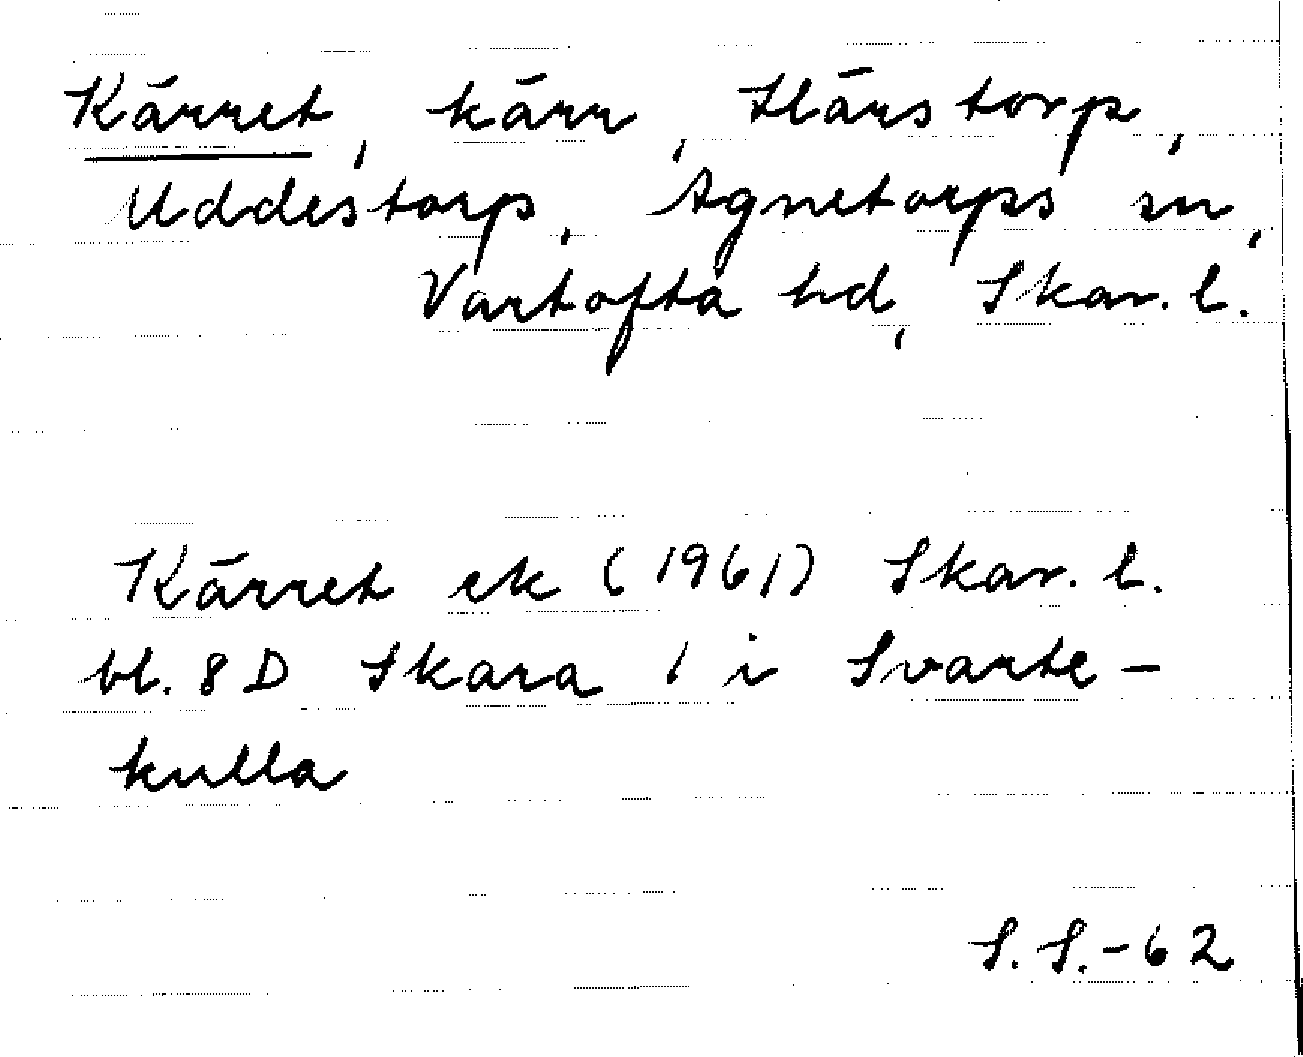 Kärret, kärr, Härstorp,
Uddestorp, Agnetorps sn,
Vartofta hd, Skar. l.
Kärret ek (1961) Skar. l.
bl. 8D Skara 1 i Svarte-
kulla
S. S.-62